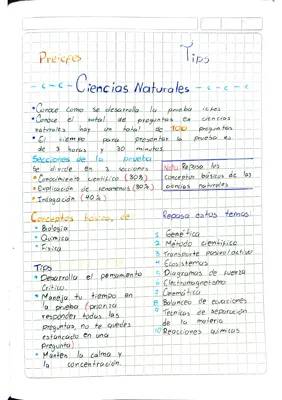 Preicfes
Tips
Ciencias Naturales
• Conoce como se desarrolla la prueba icfes
• Conoce el total de preguntas en ciencias
naturales hay un total de 100 preguntas
• El tiempo para presentar la prueba es
de 3 horas y 30 minutos
Secciones de la prueba
se divide en 3 secciones
• Conocimiento cientifico (30%)
• Explicación de fenomenos (30%)
• Indagación (40%)
Nota: Repasa los
conceptos básicos de las
ciencias naturales
Conceptos básicos de
• Biología
• Química
• Física
Tips
• Desarrolla el pensamiento
Crítico.
• Maneja tu tiempo en
la prueba (prioriza
responder todas las
preguntas, no te quedes
estancado en una
pregunta)
• Mantén la calma y
la concentración.
Repasa estos temas:
1 Genética
2 Método científico
3 Transporte pasivo/activo
4 Ecosistemas
5 Diagramas de fuerza
6 Electromagnetismo
7 Cinemática
8 Balanceo de ecuaciones
9 Tecnicas de separación
de la materia
10 Reacciones químicas